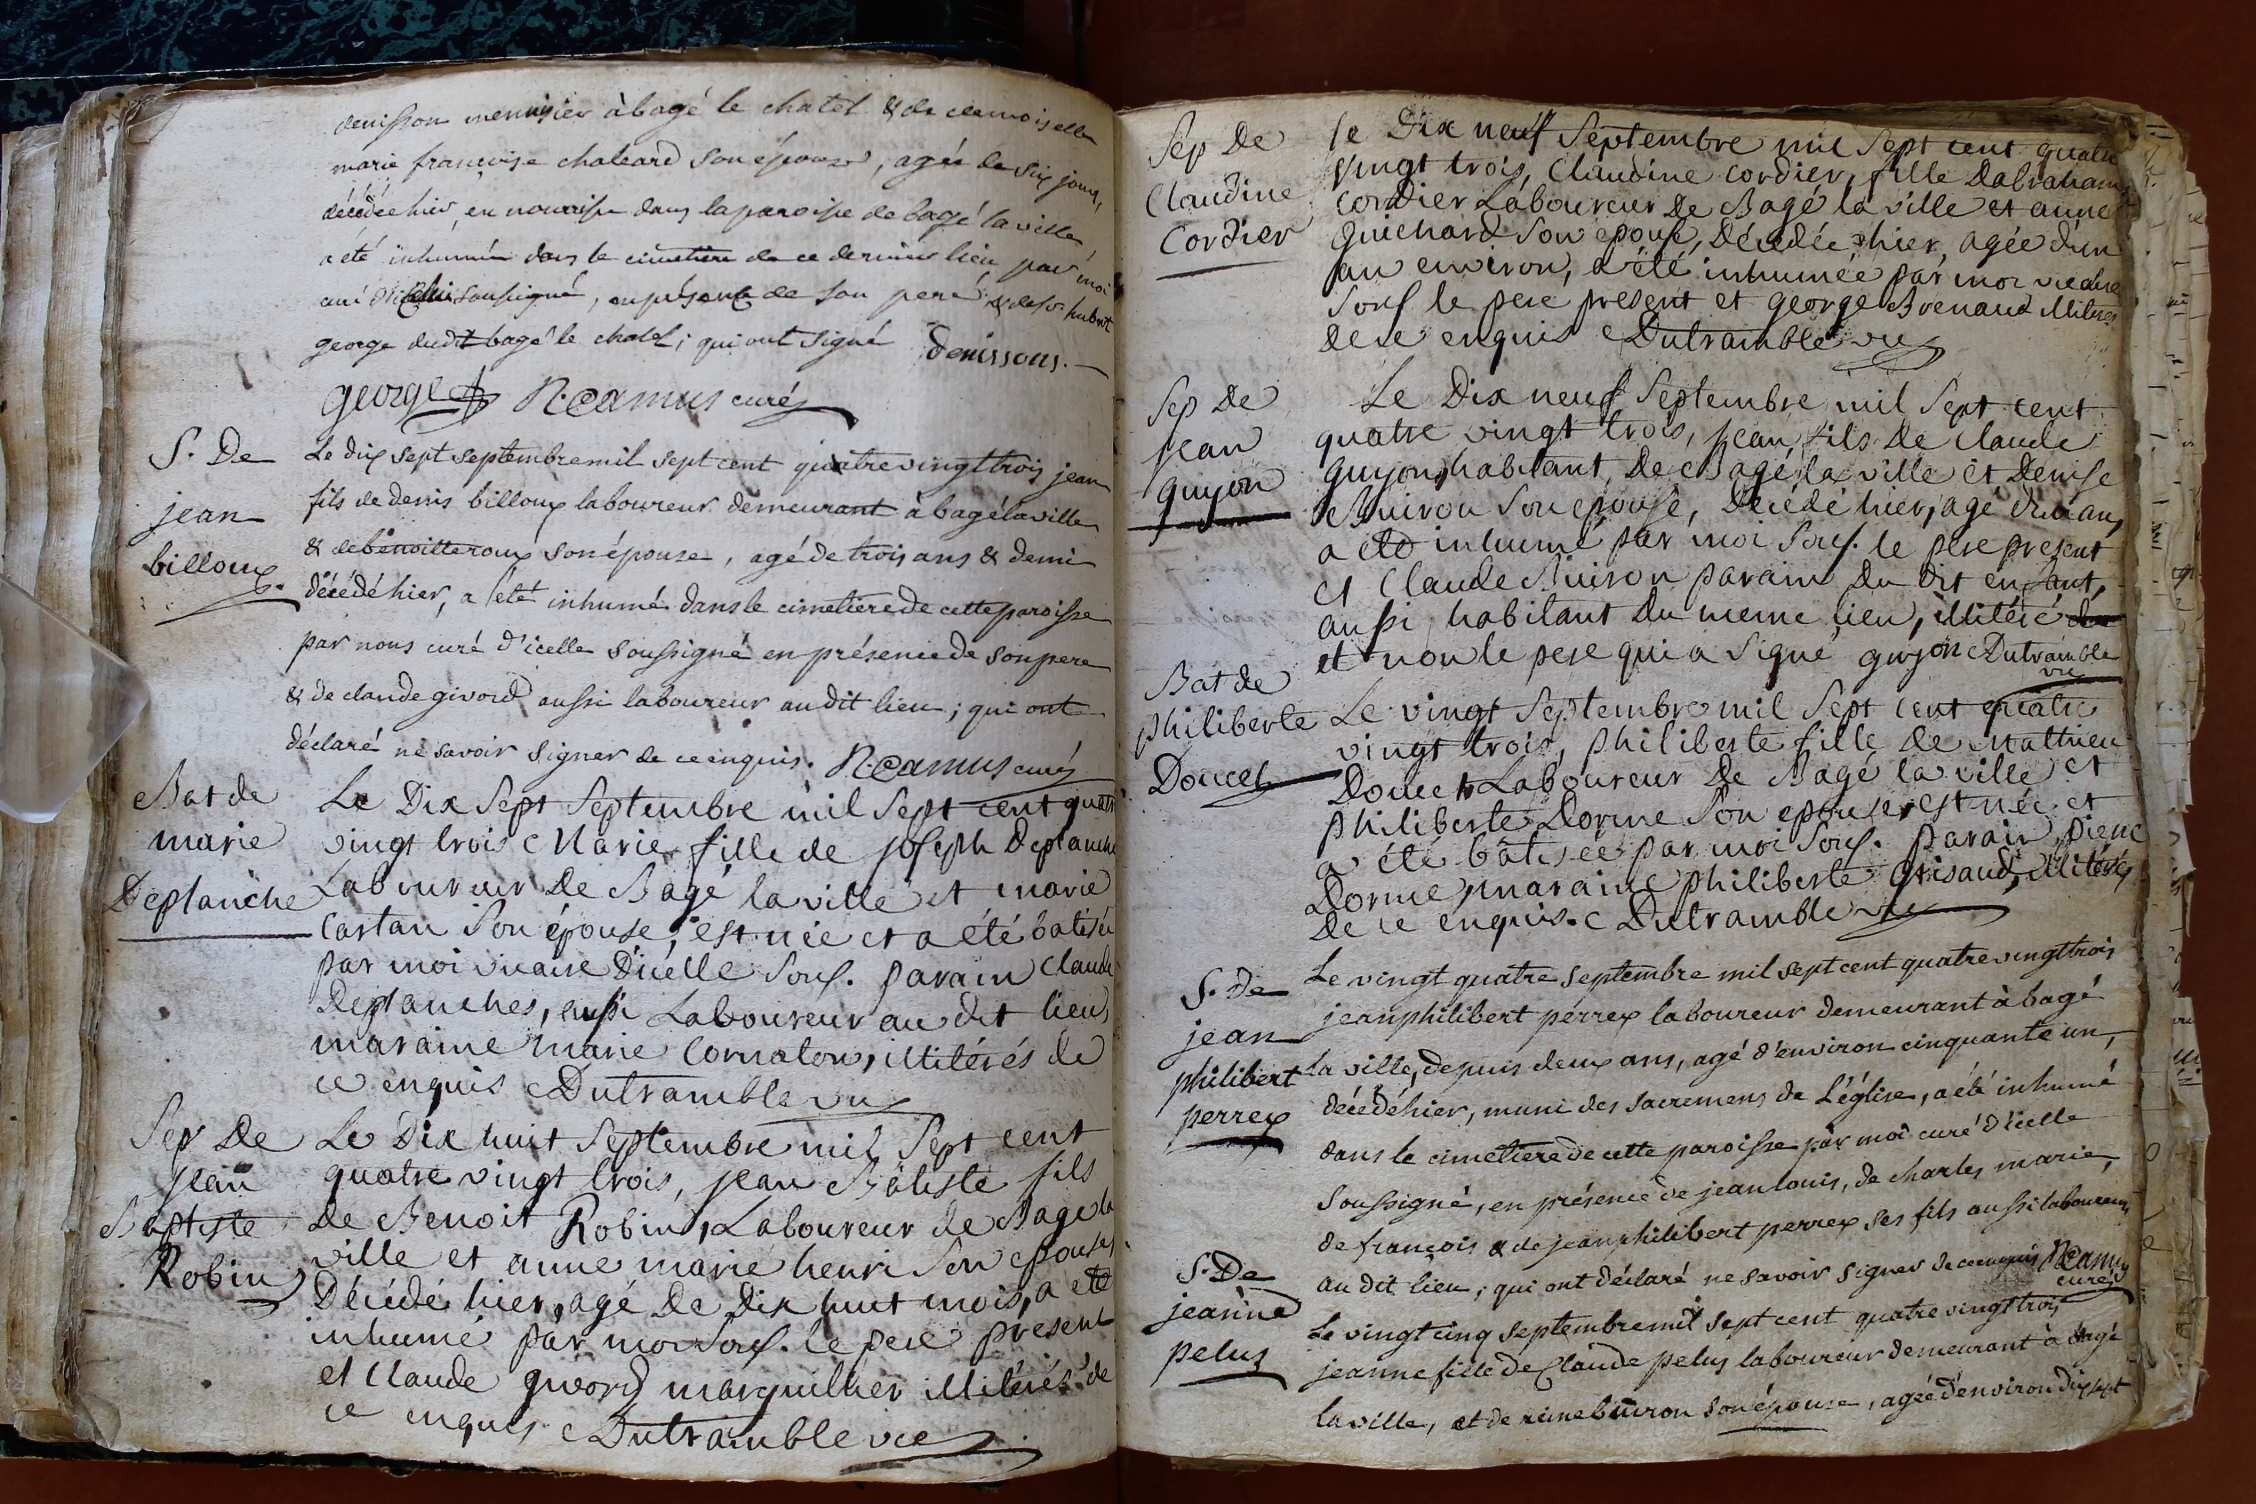 denisson menusier à bagé le chatel & de demoiselle
marie françoise chaleard son épouse, agée de six jours,
décédée hier, en nourrisse dans la paroisse de bagé la ville,
a été inhumée dans le cimetière de ce dernier lieu par moi
curé d'icelui soussigné, en présence de son pere & de sr hubert
george dudit bagé le chatel; qui ont signé denissons.
george N. camus curé
S. De
jean
billoux.
Le dix sept septembre mil sept cent quatre vingt trois jean
fils de denis billoux laboureur demeurant à bagé la ville
& de benoitte roux son épouse, agé de trois ans & demi
décédé hier, a été inhumé dans le cimetiere de cette paroisse
par nous curé d'icelle soussigné en présence de son pere
& de claude givord aussi laboureur au dit lieu; qui ont
déclaré ne savoir signer de ce enquis. N. camus curé
Bat de
marie
Deplanche
Le Dix Sept Septembre mil Sept cent quatre
vingt trois Marie fille de joseph Deplanche
Laboureur De Bagé la ville et marie
Cartan Son épouse, est née et a été batisée
par moi vicaire Dicelle Sous. parain Claude
Deplanches, aussi Laboureur au dit lieu,
maraine marie Cornaton, illitérés de
ce enquis Dutramble vic
Sep De
jean
Baptiste
Robin
Le Dix huit Septembre mil Sept cent
quatre vingt trois, jean Batiste fils
De Benoit Robin, Laboureur de Bagé la
ville et anne marie henri Son epouse,
Décédé hier, agé De Dix huit mois, a eté
inhumé par moi Sous. le pere present
et Claude givord marguillier illitérés de
ce enquis Dutramble vic
Sep De
Claudine
Cordier
le Dix neuf Septembre mil Sept cent quatre
vingt trois, Claudine cordier, fille Dabraham
Cordier Laboureur De Bagé la ville et anne
Guichard Son epouse, Décédée hier, agée d'un
an environ, a été inhumée par moi vicaire
Sous le pere present et george Brenaud illiteres
de ce enquis Dutramble vic
Sep De
jean
guyon
Le Dix neuf Septembre mil Sept cent
quatre vingt trois, jean fils De claude
guyon, habitant De Bagé la ville et Denise
Buiron Son epouse, Décédé hier, agé d'un an,
a eté inhumé par moi Sous. le pere present
et Claude Buiron parain Du Dit enfant,
aussi habitant Du meme lieu, illitéré
et non le pere qui a Signé guyon Dutramble
vic
Bat de
philiberte
Doucet
Le vingt Septembre mil Sept cent quatre
vingt trois, philiberte fille De Mathieu
Doucet Laboureur De Bagé la ville et
philiberte Dorme Son epouse, est née et
a été batisée par moi Sous. parain pierre
Dorme, maraine philiberte Grisaud, illiterés
De ce enquis. Dutramble vic
S. De
jean
philibert
perrex
Le vingt quatre septembre mil sept cent quatre vingt trois
jean philibert perrex laboureur demeurant à bagé
la ville, depuis deux ans, agé d'environ cinquante un,
décédé hier, muni des sacremens de L'église, a été inhumé
dans le cimetiere de cette paroisse par moi curé d'icelle
soussigné, en présence de jean louis, de charles marie,
de françois & de jean philibert perrex ses fils aussi laboureurs
au dit lieu; qui ont déclaré ne savoir signer de ce enquis N. Camus
curé
S. De
jeanne
pelus
Le vingt cinq septembre mil sept cent quatre vingt trois
jeanne fille de Claude pelus laboureur demeurant à bagé
la ville, et de buiron son épouse, agée d'environ dix sept